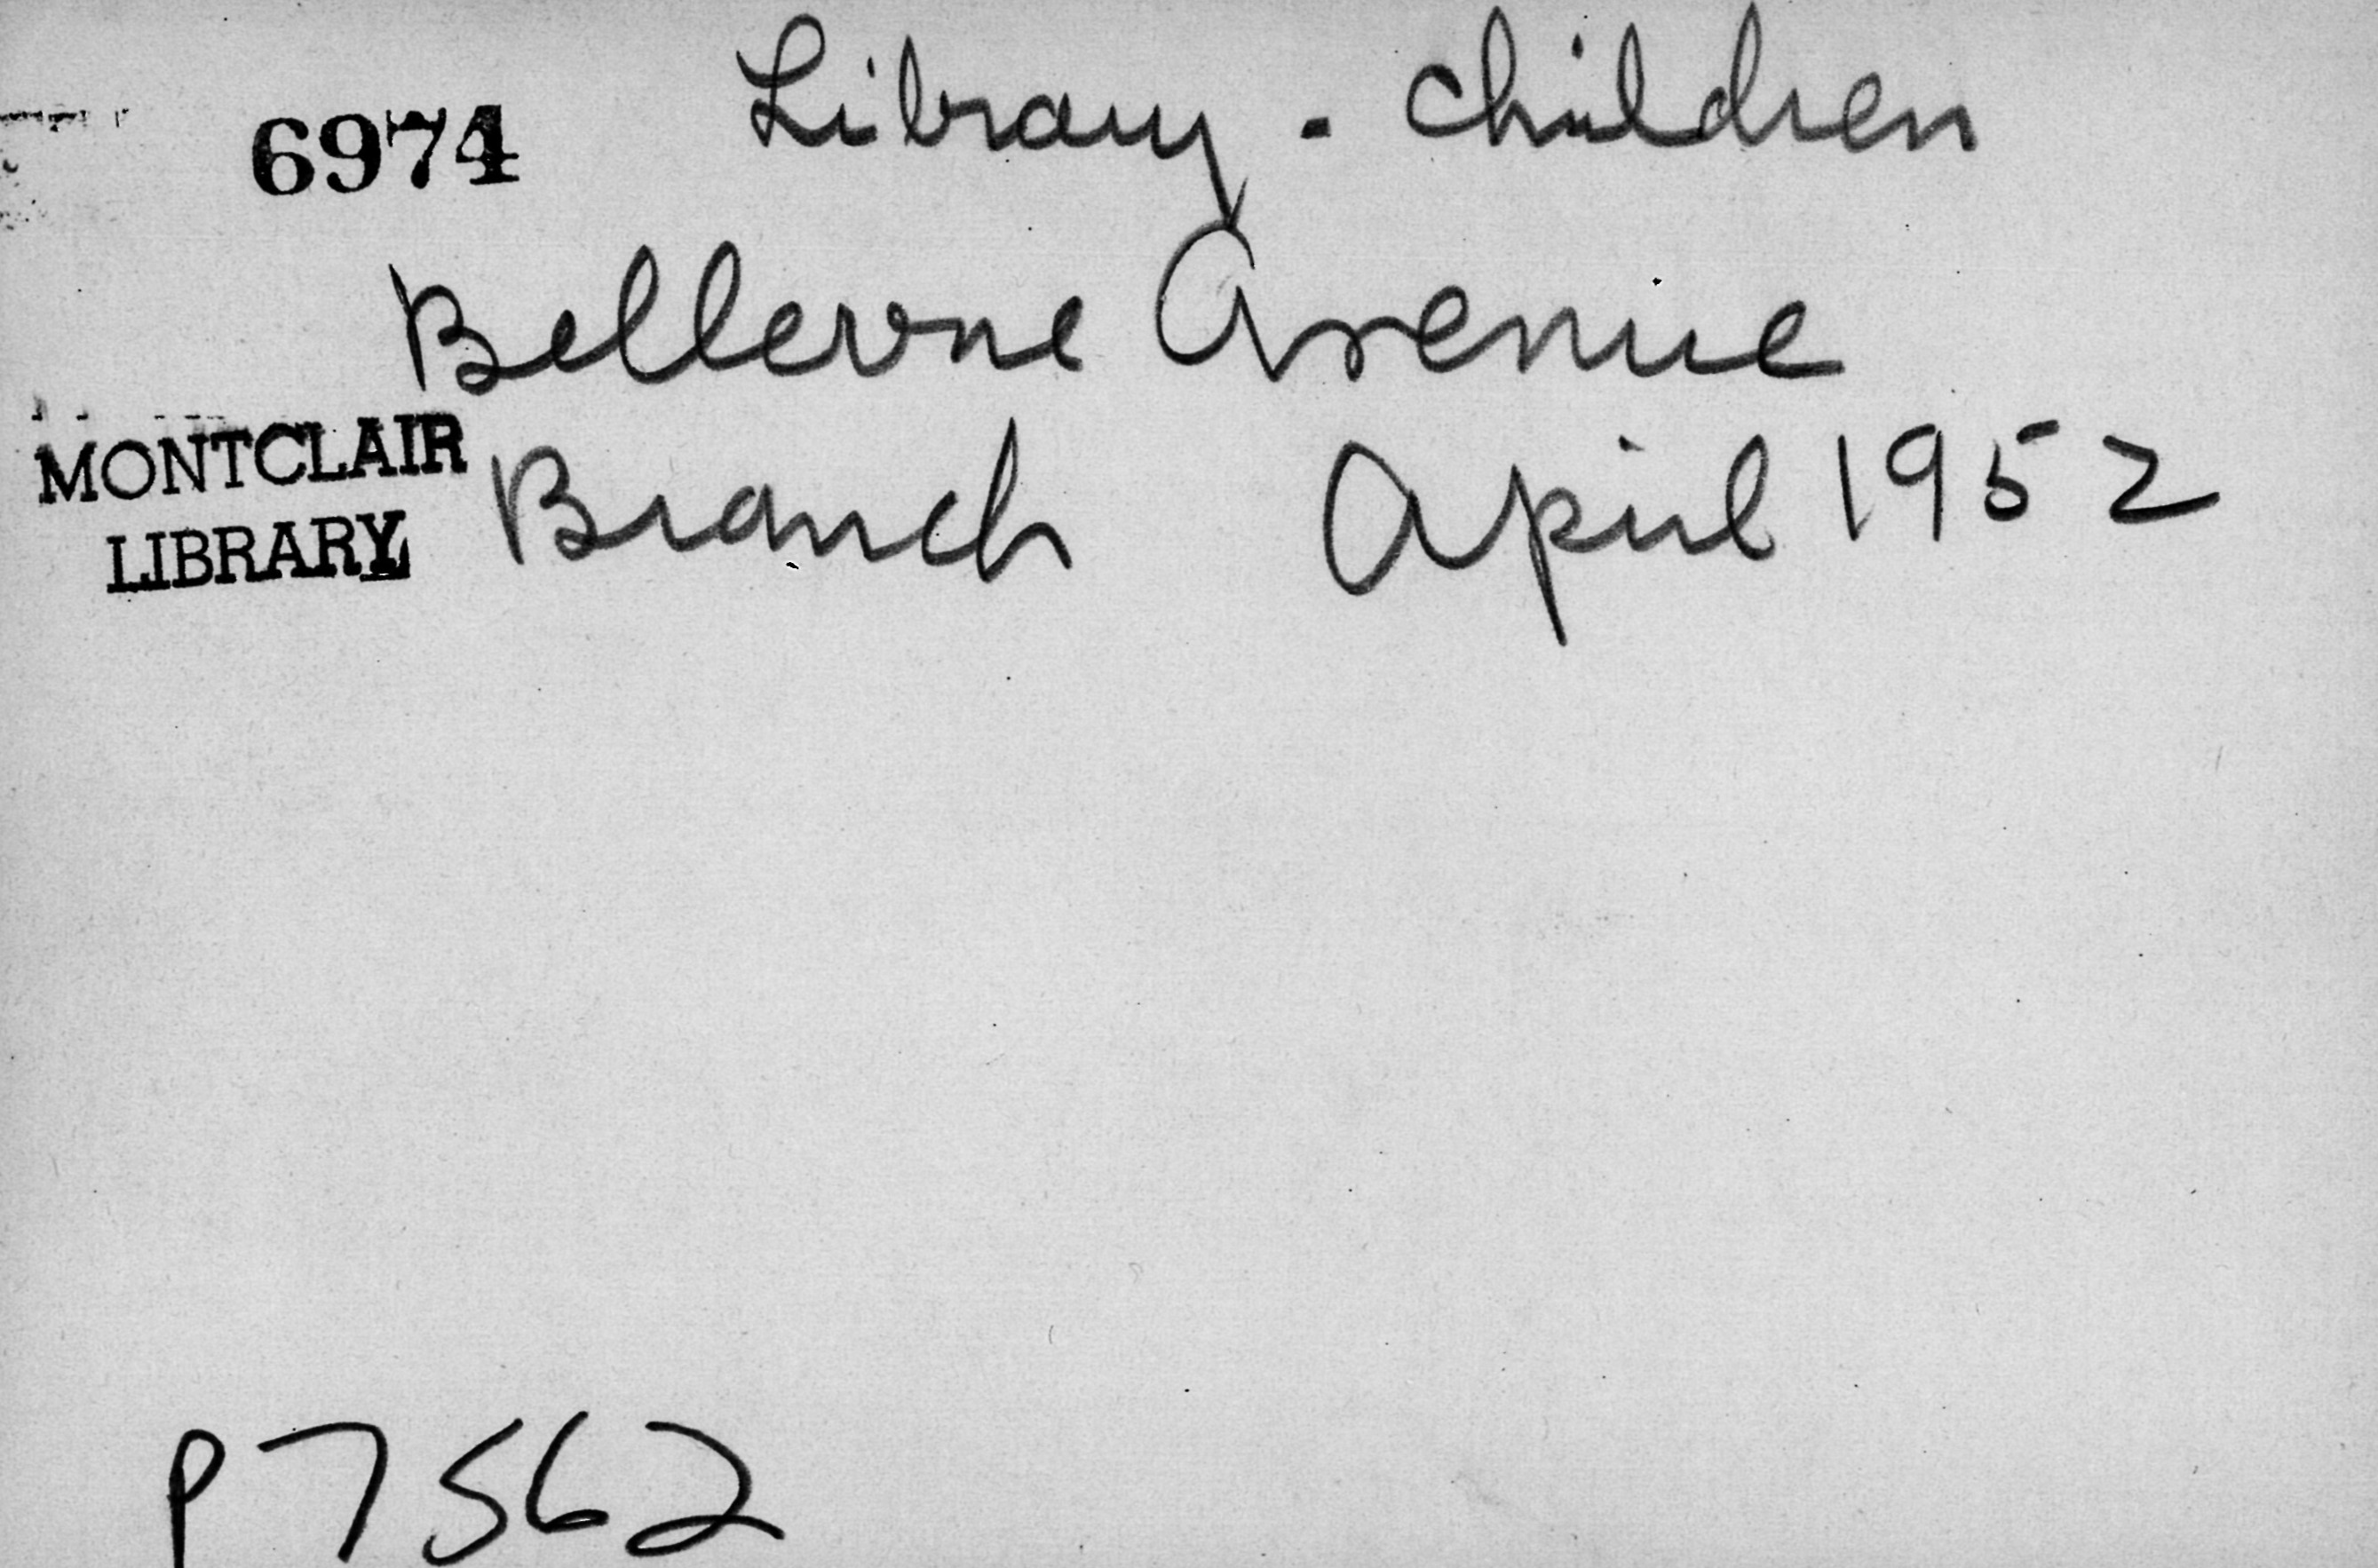 6974 Library - Children
Bellevue Avenue
MONTCLAIR
LIBRARY
Branch April 1952
P7562